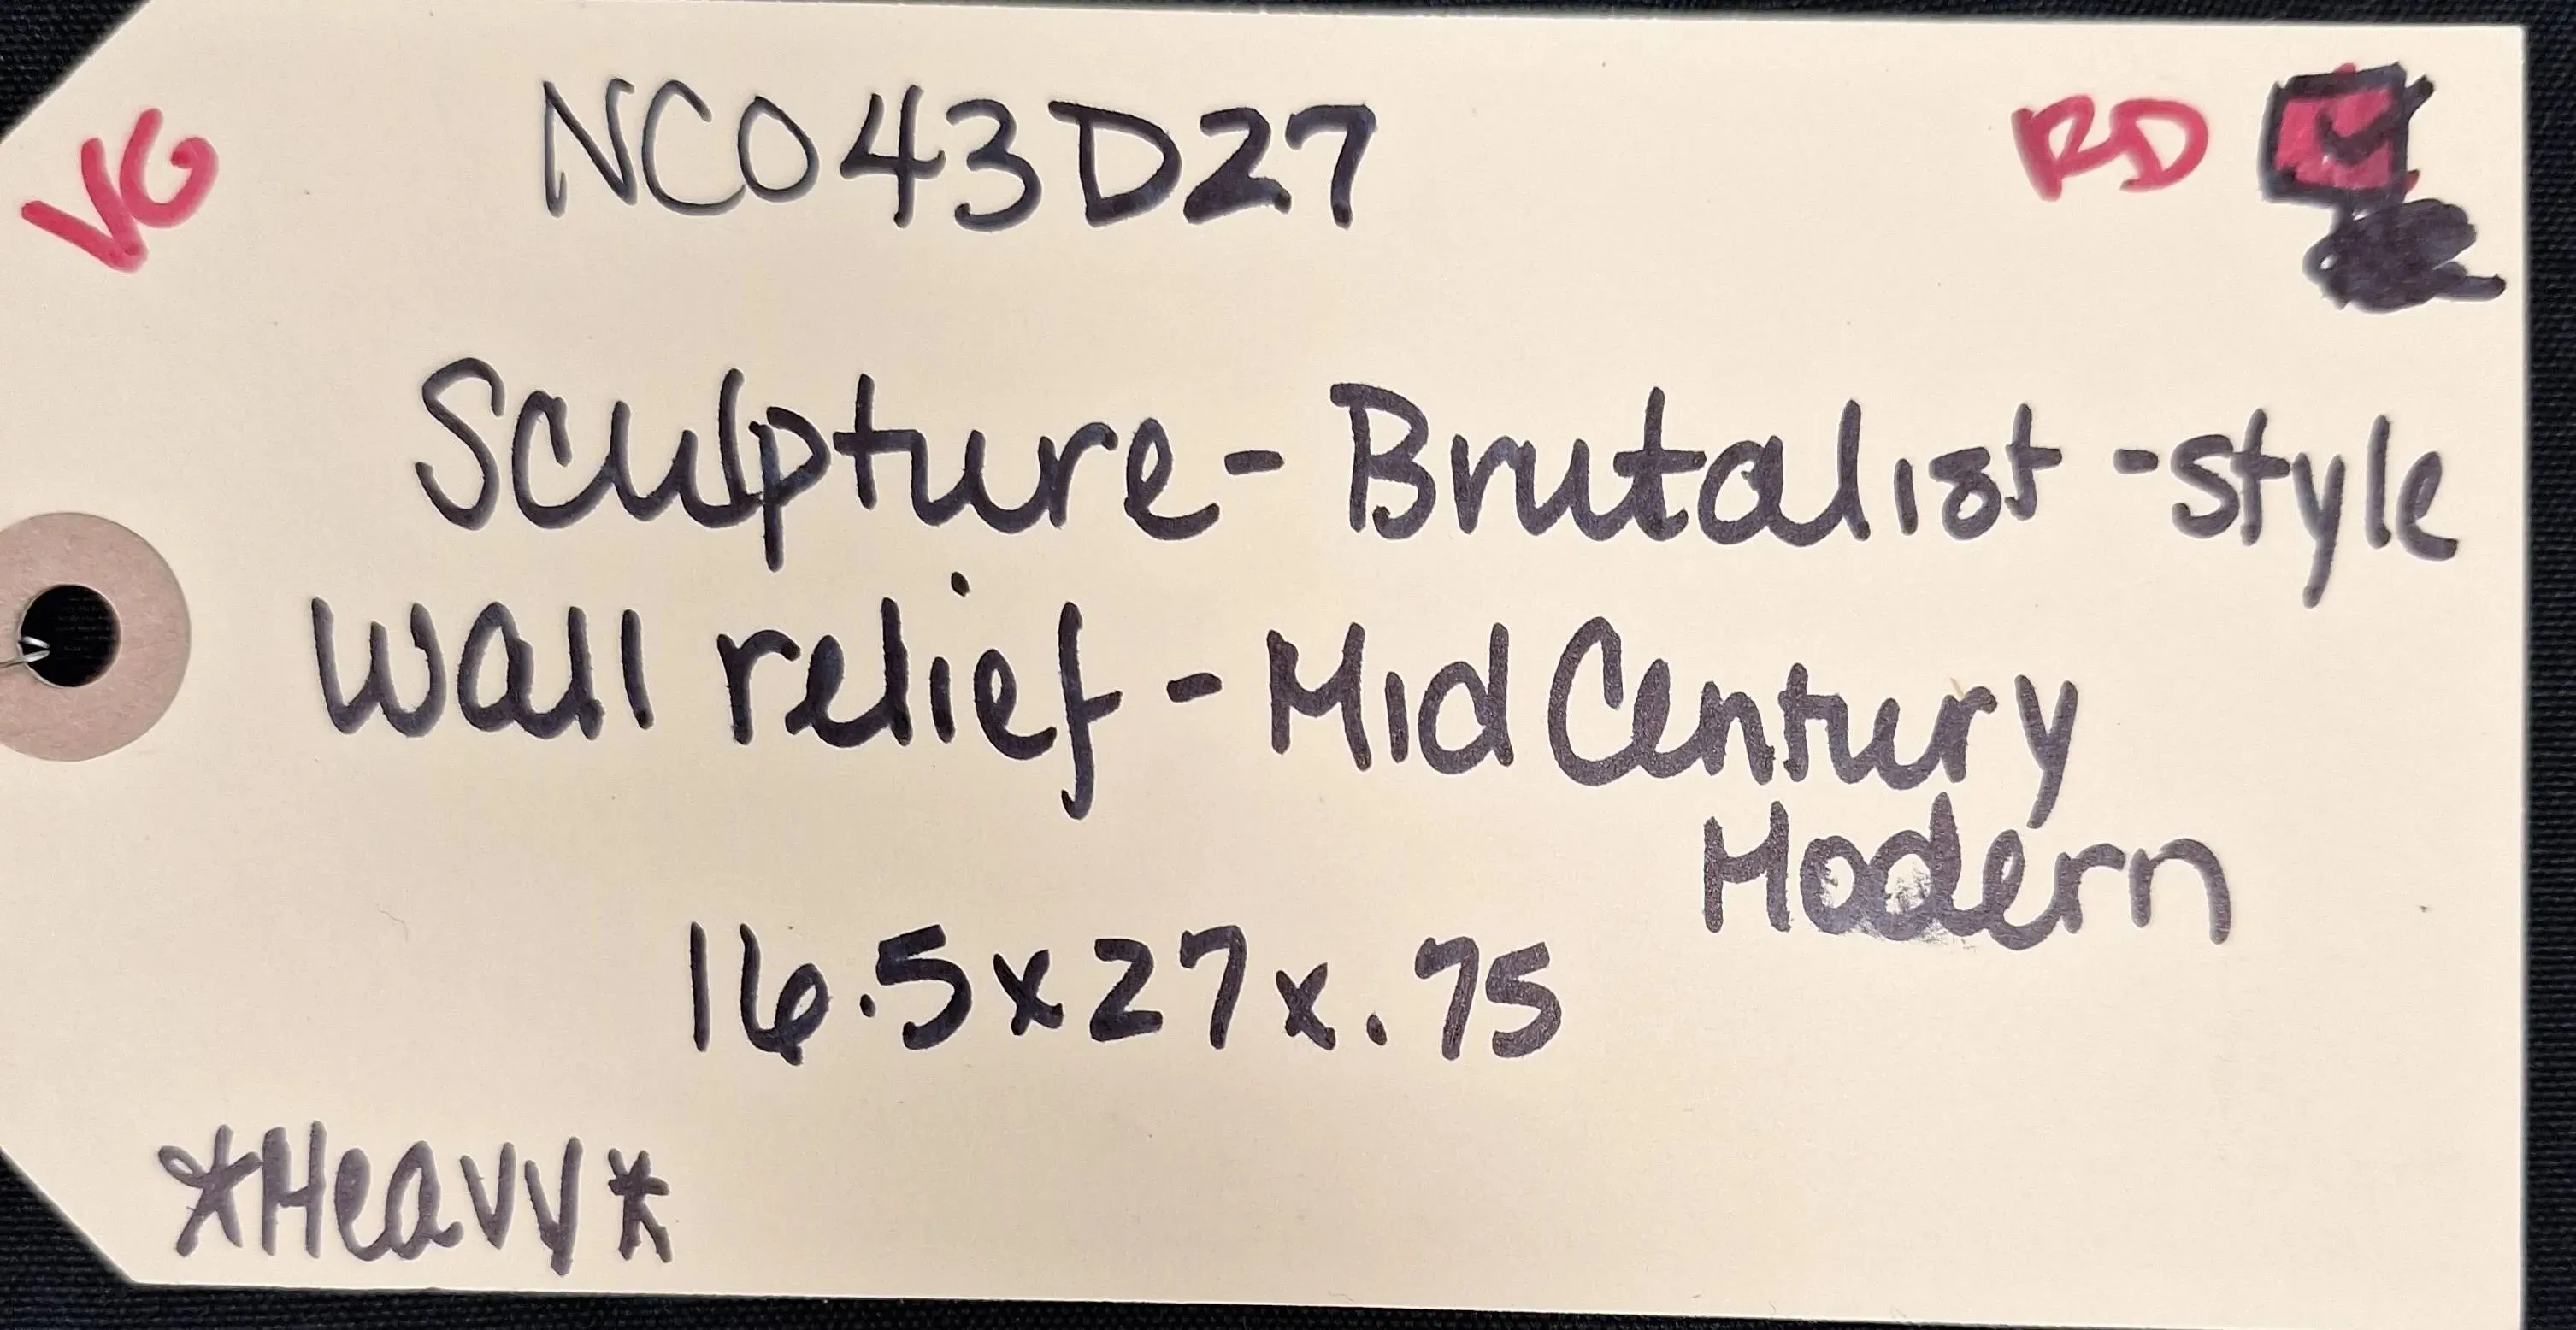 VG NC043D27 RD
Sculpture - Brutalist - style
Wall relief - Mid Century
Modern
16.5x27x.75
*Heavy*